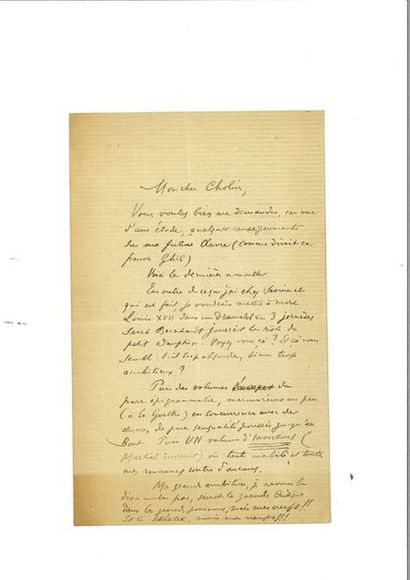 Mon cher Cholin,
Vous voulez bien me demander, en vue
d'une étude, quelques renseignements
sur ma future Œuvre (comme dirait ce
pauvre Ghil)
Voici les dernières nouvelles.
En outre de ce que j'ai chez Savine et
qui est fait, je voudrais mettre à
Louis XVII dans un Drame en 3 journées
Sarah Bernhardt jouerait le rôle du
petit Dauphin. Voyez vous ça? Et ça vous
semble-t-il trop absurde, sinon trop
ambitieux?
Puis des volumes de
pure épigrammatie, marmoréens un peu
(à la Goethe) en concurrence avec des
de pure sensualité poussés jusqu'au
Bout. Puis UN volume d'Invectives (
Martial ) où toute et toutes
mes rancunes contre d'aucuns.
Ma grande ambition, je ne vous le
dissimule pas, serait la grande Critique
dans les grands journaux, mais mes nerfs!!
Et le théâtre, mais mes nerfs!!!